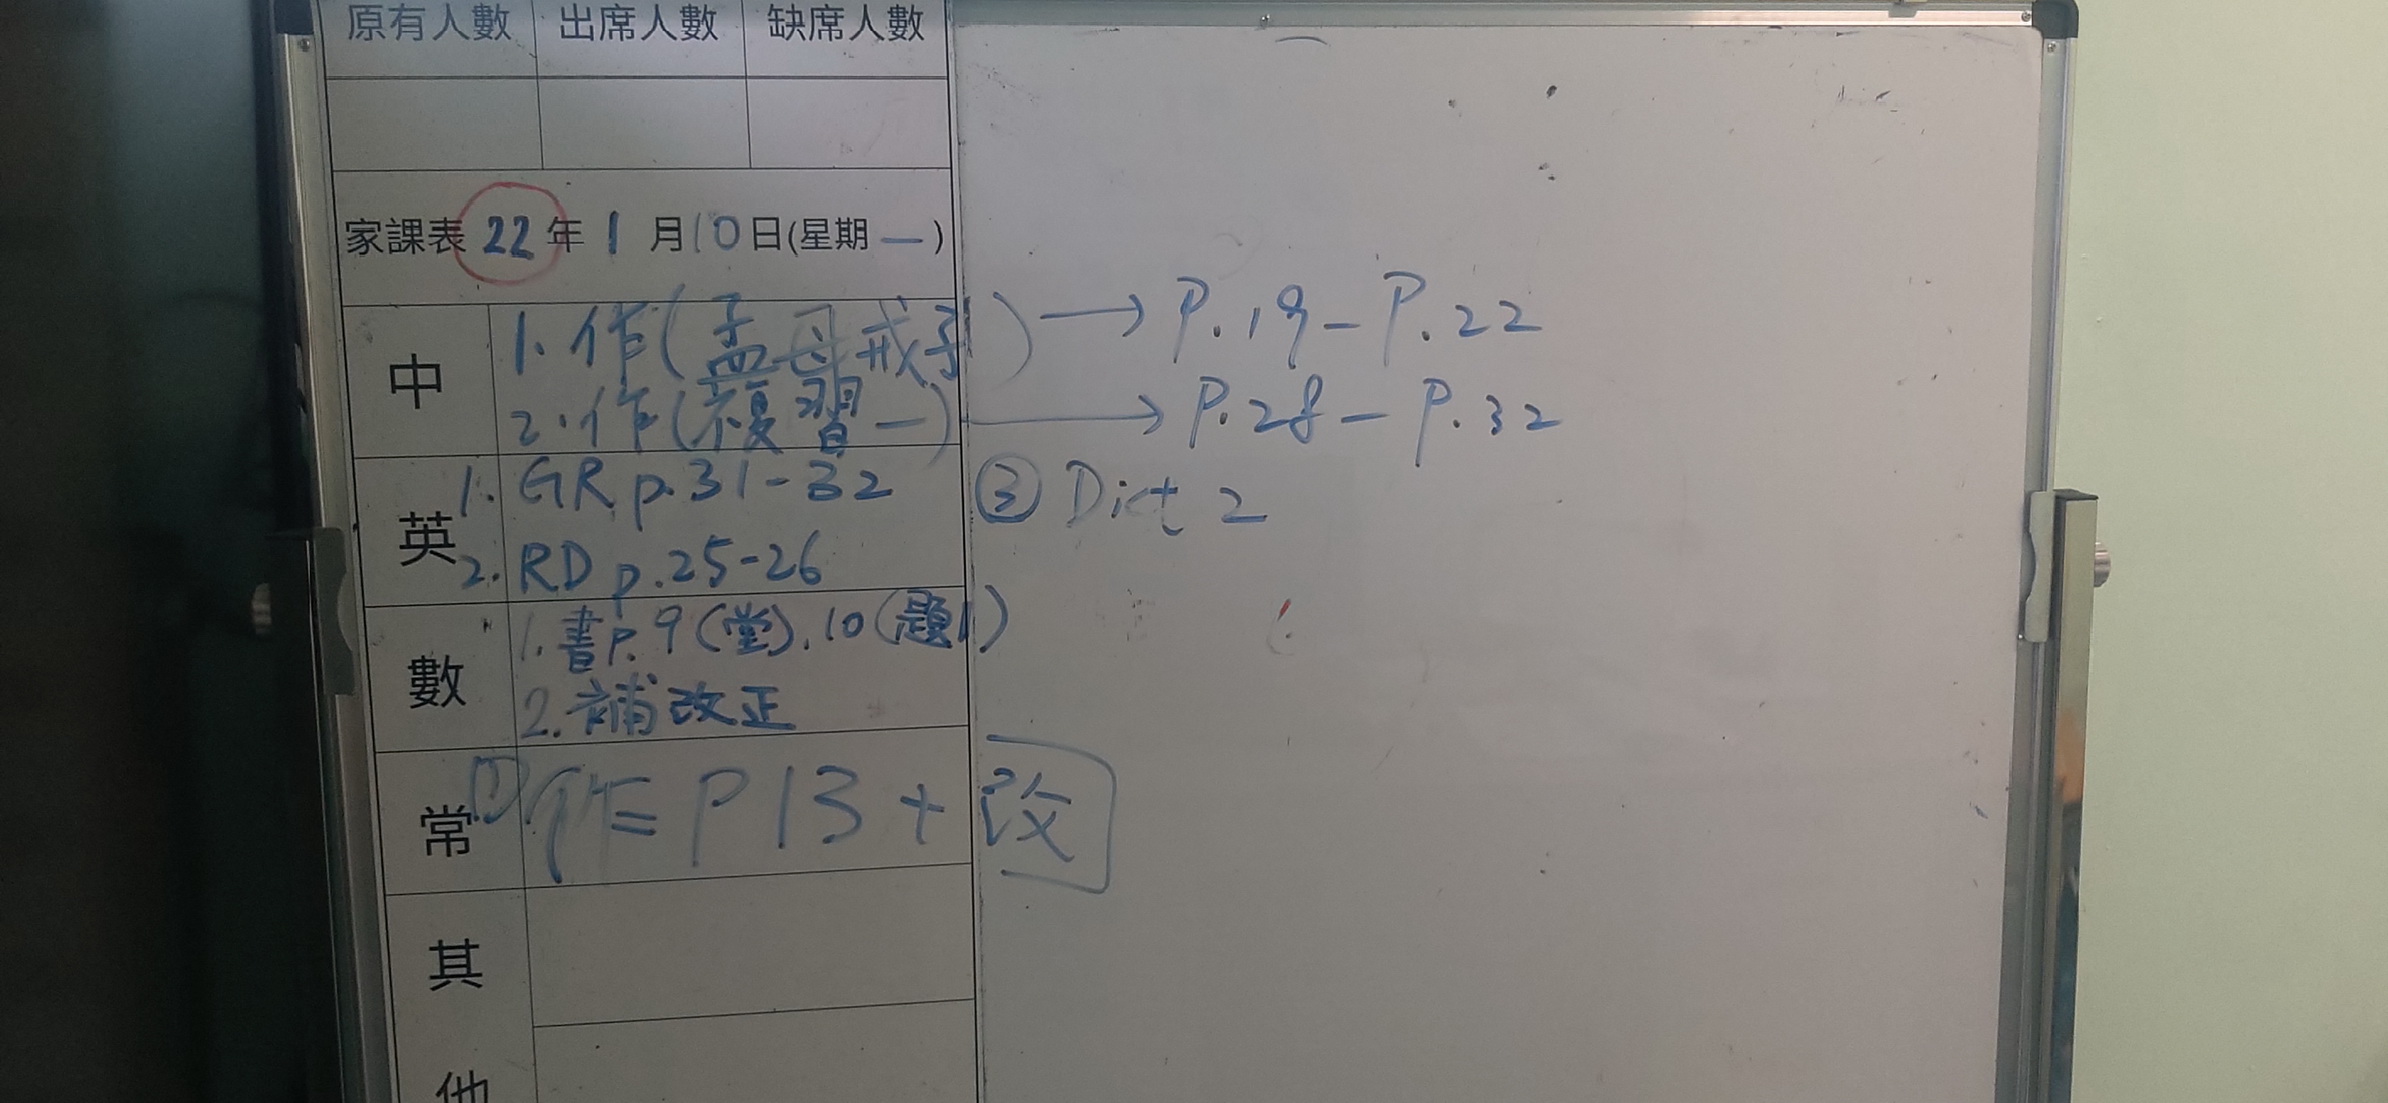 原有人數 出席人數 缺席人數
家課表 22年 1月10日(星期一)
中
1. 作(孟母戒子) → P.19-P.22
2. 作(複習一) → P.28-P.32
英
1. GR p.31-32 ③ Dict 2
2. RD p.25-26
數
1. 書p.9(堂), 10(題1)
2. 補改正
常
① 作= P13 + 改
其
他